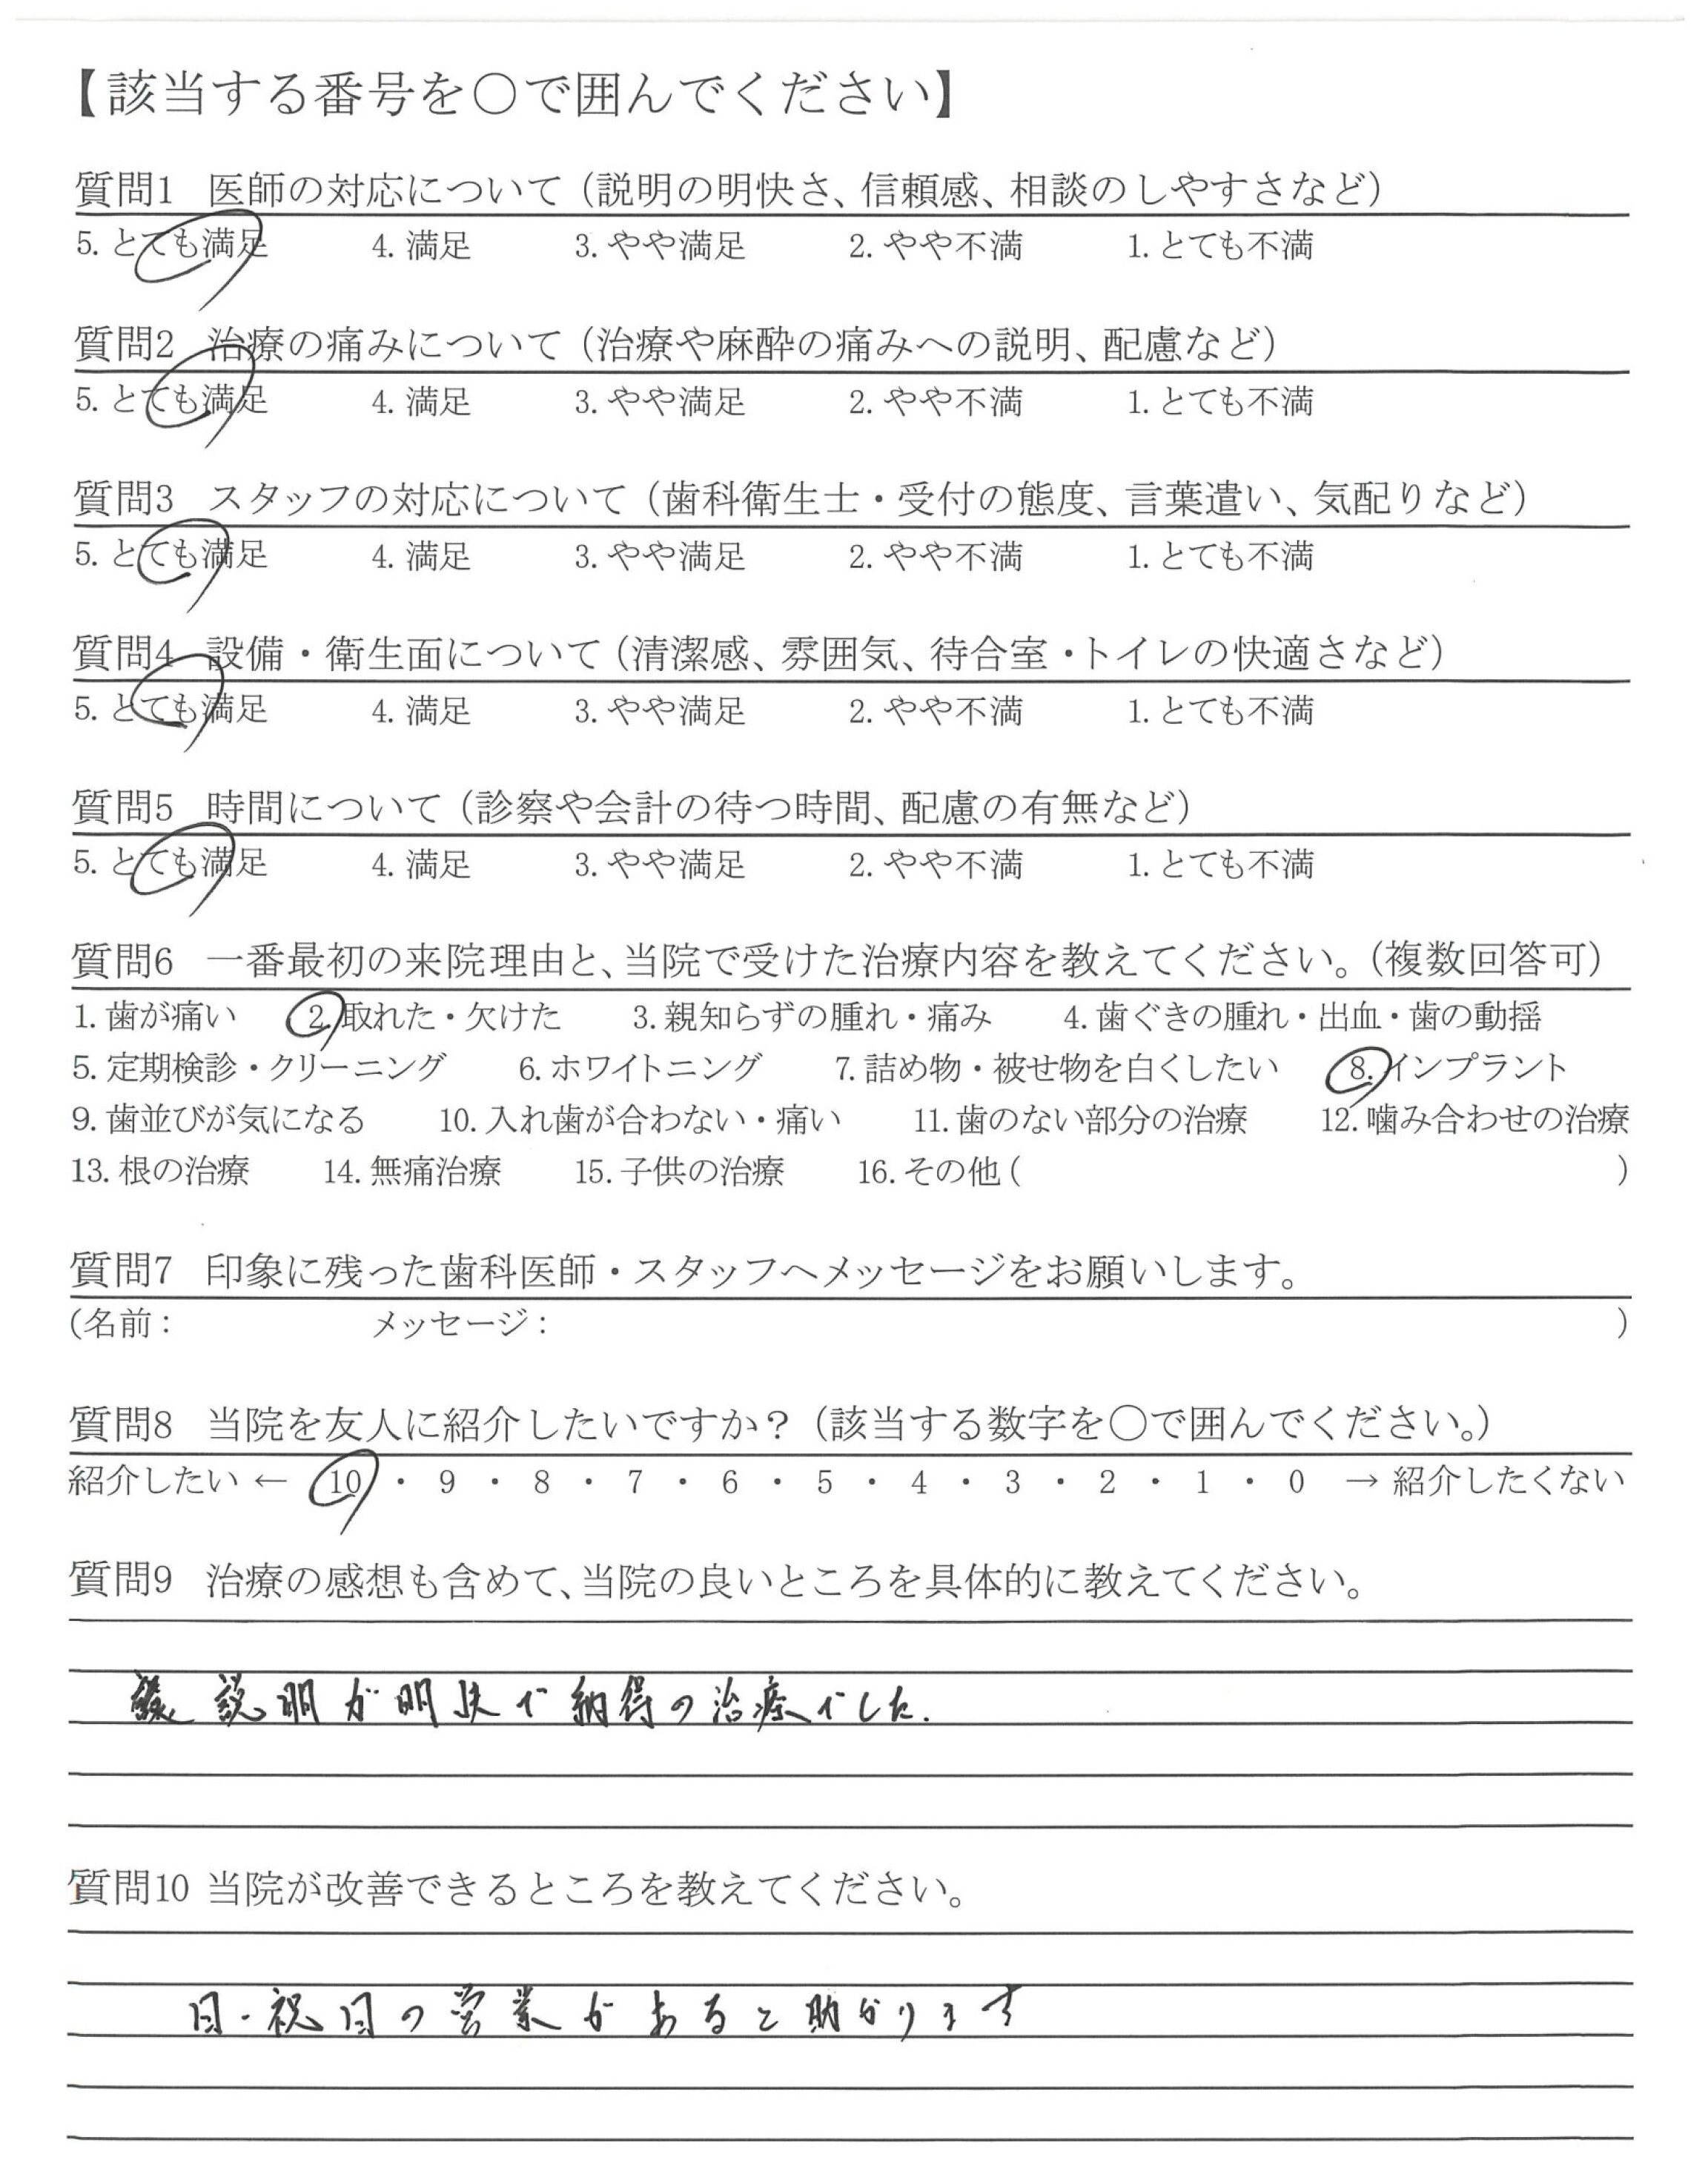 【該当する番号を○で囲んでください】
質問1 医師の対応について（説明の明快さ、信頼感、相談のしやすさなど）
5. とても満足 4. 満足 3. やや満足 2. やや不満 1. とても不満
質問2 治療の痛みについて（治療や麻酔の痛みへの説明、配慮など）
5. とても満足 4. 満足 3. やや満足 2. やや不満 1. とても不満
質問3 スタッフの対応について（歯科衛生士・受付の態度、言葉遣い、気配りなど）
5. とても満足 4. 満足 3. やや満足 2. やや不満 1. とても不満
質問4 設備・衛生面について（清潔感、雰囲気、待合室・トイレの快適さなど）
5. とても満足 4. 満足 3. やや満足 2. やや不満 1. とても不満
質問5 時間について（診察や会計の待つ時間、配慮の有無など）
5. とても満足 4. 満足 3. やや満足 2. やや不満 1. とても不満
質問6 一番最初の来院理由と、当院で受けた治療内容を教えてください。（複数回答可）
1. 歯が痛い 2. 取れた・欠けた 3. 親知らずの腫れ・痛み 4. 歯ぐきの腫れ・出血・歯の動揺
5. 定期検診・クリーニング 6. ホワイトニング 7. 詰め物・被せ物を白くしたい 8. インプラント
9. 歯並びが気になる 10. 入れ歯が合わない・痛い 11. 歯のない部分の治療 12. 噛み合わせの治療
13. 根の治療 14. 無痛治療 15. 子供の治療 16. その他 ( )
質問7 印象に残った歯科医師・スタッフへメッセージをお願いします。
(名前： メッセージ： )
質問8 当院を友人に紹介したいですか？（該当する数字を○で囲んでください。）
紹介したい ← 10 ・ 9 ・ 8 ・ 7 ・ 6 ・ 5 ・ 4 ・ 3 ・ 2 ・ 1 ・ 0 → 紹介したくない
質問9 治療の感想も含めて、当院の良いところを具体的に教えてください。
説明が明快で納得の治療でした.
質問10 当院が改善できるところを教えてください。
日・祝日の営業があると助かります